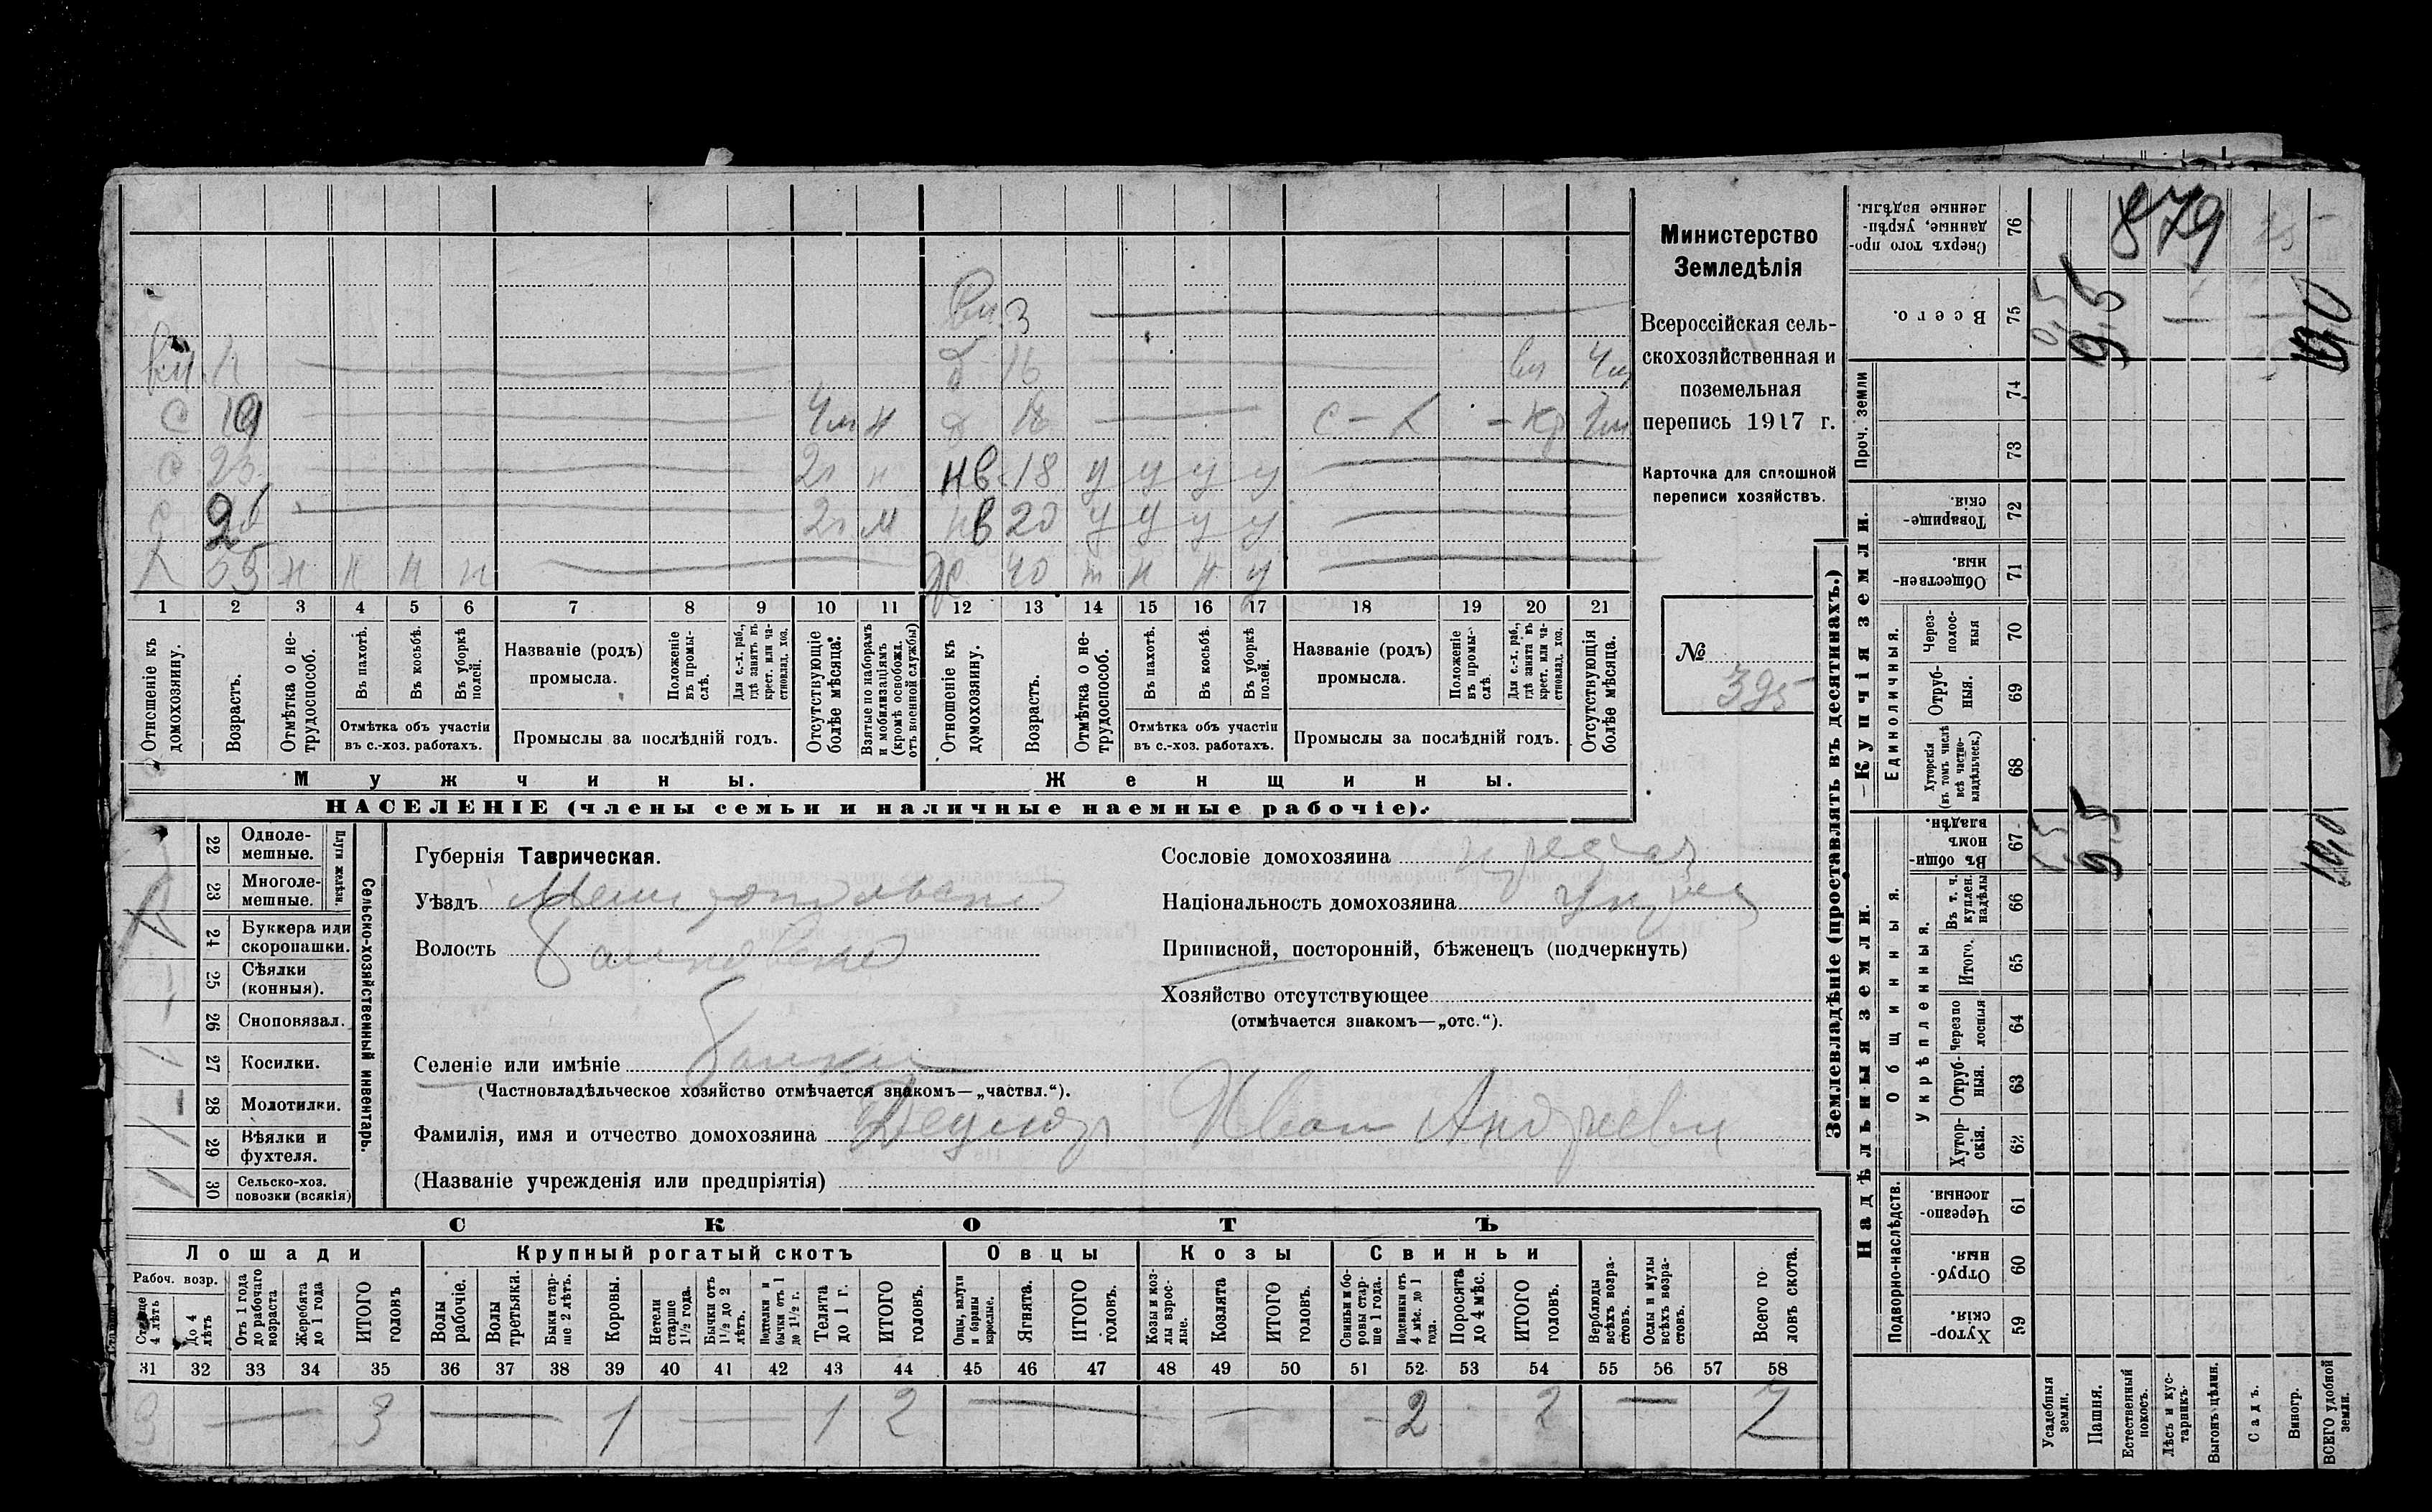 879
Министерство
Земледѣлія
Всероссійская сель-
скохозяйственная и
поземельная
перепись 1917 г.
Карточка для сплошной
переписи хозяйствъ.
№
395
вн. 3
вн.
д 16 вн 4 м
с 19 4 м н д 18 с – х – кр 2 м
с 23 2 г н нв 18 у у у у
с 2 г м нв 20 у у у у
х 55 н н н н ж 40 н н у
1 2 3 4 5 6 7 8 9 10 11 12 13 14 15 16 17 18 19 20 21
Отнсшеніе къ домохозяину.
Возрастъ.
Отмѣтка о не-трудоспособ.
Въ пахотѣ.
Въ косьбѣ.
Въ уборкѣ полей.
Отмѣтка объ участіи
въ с.-хоз. работахъ.
Названіе (родъ)
промысла.
Положеніе въ промы-слѣ.
Для с.-х. раб., гдѣ занятъ въ крест. или ча-стновлад. хоз.
Промыслы за послѣдній годъ.
Отсутствующіе болѣе мѣсяца.
Взятые по наборамъ и мобилизаціямъ (кромѣ освобожд. отъ военной службы)
Отношеніе къ домохозяину.
Возрастъ.
Отмѣтка о не-трудоспособ.
Въ пахотѣ.
Въ косьбѣ.
Въ уборкѣ полей.
Отмѣтка объ участіи
въ с.-хоз. работахъ.
Названіе (родъ)
промысла.
Положеніе въ промы-слѣ.
Для с.-х. раб., гдѣ занята въ крест. или ча-стновлад. хоз.
Промыслы за послѣдній годъ.
Отсутствующія болѣе мѣсяца.
Мужчины.
Женщины.
НАСЕЛЕНІЕ (члены семьи и наличные наемные рабочіе).
Сельско-хозяйственный инвентарь.
Плуги желѣзн.
22 Одноле-
мешные.
23 Многоле-
мешные.
24 Буккера или
скоропашки.
25 Сѣялки
(конныя).
26 Сноповязал.
27 Косилки.
28 Молотилки.
29 Вѣялки и
фухтеля.
30 Сельско-хоз.
повозки (всякія)
Губернія Таврическая.
Уѣздъ Мелитопольскій
Волость Балковская
Селеніе или имѣніе Балки
(Частновладѣльческое хозяйство отмѣчается знакомъ—„частвл.“).
Фамилія, имя и отчество домохозяина Иван Андреевич
(Названіе учрежденія или предпріятія)
Сословіе домохозяина
Національность домохозяина Укр
Приписной, посторонній, бѣженецъ (подчеркнуть)
Хозяйство отсутствующее
(отмѣчается знакомъ—„отс.“).
СКОТЪ
Лошади
Крупный рогатый скотъ
Овцы
Козы
Свиньи
Рабоч. возр.
Старше 4 лѣтъ
До 4 лѣтъ
Отъ 1 года до рабочаго возраста
Жеребята до 1 года
ИТОГО головъ
Волы рабочіе.
Волы третьяки.
Быки стар-ше 2 лѣтъ.
Коровы.
Нетели старше 1½ года.
Бычки отъ 1½ до 2 лѣтъ.
Подтелки и бычки отъ 1 до 1½ г.
Телята до 1 г.
ИТОГО головъ.
Овцы, валухи и бараны взрослые.
Ягнята.
ИТОГО головъ.
Козы и коз-лы взрос-лые.
Козлята
ИТОГО головъ.
Свиньи и бо-ровы стар-ше 1 года.
Подсвинки отъ 4 мѣс. до 1 года.
Поросята до 4 мѣс.
ИТОГО головъ.
Верблюды всѣхъ возра-стовъ.
Ослы и мулы всѣхъ возра-стовъ.
Всего го-ловъ скота.
31 32 33 34 35 36 37 38 39 40 41 42 43 44 45 46 47 48 49 50 51 52 53 54 55 56 57 58
3 — 3 — 1 — 1 2 — — - 2 2 — 7
Землевладѣніе (проставлять въ десятинахъ.)
Надѣльныя земли.
Купчія земли.
Подворно-наслѣдств.
Общинныя.
Укрѣпленныя.
Единоличныя.
Проч. земли
76 Сверхъ того про-данные, укрѣп-ленные надѣлы.
75 Всего.
74
73
72 Товарище-скія.
71 Обществен-ныя.
70 Через-полос-ныя
69 Отруб-ныя.
68 Хуторскія (въ томъ числѣ всѣ частно-владѣльческ.)
67 Въ общин-номъ владѣн.
66 Въ т. ч. куплен. надѣлы
65 Итого.
64 Черезпо-лосныя
63 Отруб-ныя.
62 Хутор-скія.
61 Черезпо-лосныя.
60 Отруб-ныя.
59 Хутор-скія.
Усадебныя земли.
Пашня.
Естественный покосъ.
Лѣсъ и кус-тарникъ.
Выгонъ цѣлин.
Садъ.
Виногр.
ВСЕГО удобной земли.
0,5 9,5 10,0
9,5 10,0